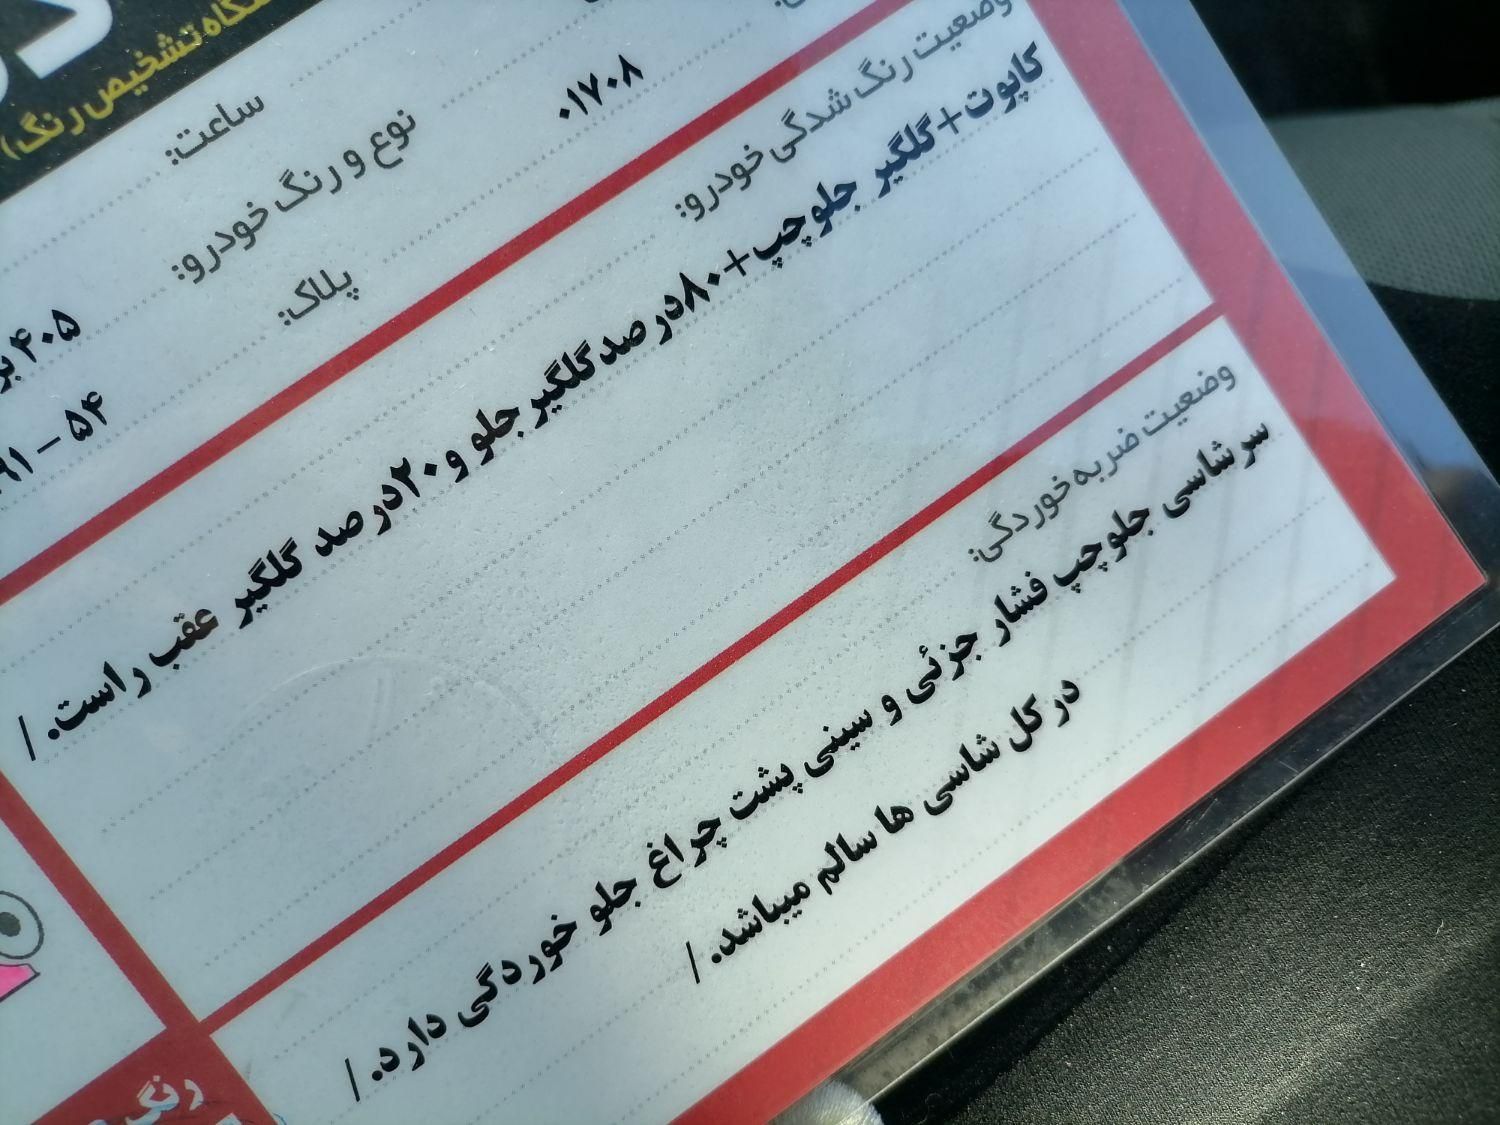 تشخیص رنگ)
ساعت:
نوع و رنگ خودرو:
۴۰۵
۰۱۷۰۸
پلاک:
۵۴ – ۹۱
وضعیت رنگ شدگی خودرو:
کاپوت+گلگیر جلوچپ+۸۰درصدگلگیر جلو و۲۰درصد گلگیر عقب راست. /
وضعیت ضربه خوردگی:
سرشاسی جلوچپ فشار جزئی و سینی پشت چراغ جلو خوردگی دارد. /
درکل شاسی ها سالم میباشد. /
رنگ